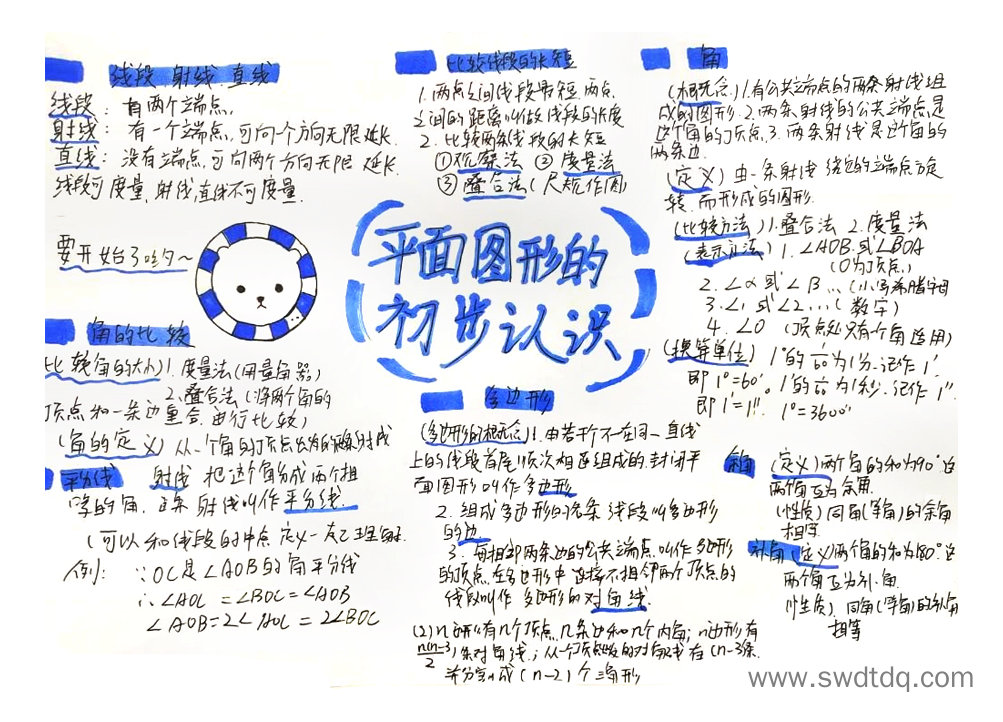 线段 射线 直线
线段: 有两个端点,
射线: 有一个端点,可向一个方向无限延长
直线: 没有端点,可向两个方向无限延长.
线段可度量,射线,直线不可度量.
要开始了哟~
角的比较
比较角的大小) 1. 度量法(用量角器)
2. 叠合法(将两个角的
顶点和一条边重合,进行比较)
(角的定义) 从一个角的顶点出发的
平分线 射线 把这个角分成两个相
等的角, 这条 射线叫作平分线.
(可以和线段的中点 定义一
例: ∵OC是∠AOB的角平分线
∴∠AOC = ∠BOC = ∠AOB
∠AOB=2∠AOC = 2∠BOC
比较线段的长短
1. 两点之间线段最短,两点
之间的距离叫做线段的长度
2. 比较两条线段的长短
①观察法 ②度量法
③叠合法(尺规作图)
平面图形的
初步认识
多边形
(多边形的概念) 1. 由若干个不在同一直线
上的线段首尾顺次相连组成的封闭平
面图形叫作多边形
2. 组成多边形的各条线段叫多边形
的边
3. 每相邻两条边的公共端点叫作多边形
的顶点,在多边形中连接不相邻两个顶点的
线段叫作 多边形的对角线.
(2) n边形有n个顶点,n条边和n个内角; n边形有
n(n-3)/2 条对角线; 从一个顶点出发的对角线有(n-3)条.
并分割成(n-2)个三角形
角
(概念) 1. 有公共端点的两条射线组
成的图形. 2. 两条射线的公共端点是
这个角的顶点, 3. 两条射线是这个角的
两条边.
(定义) 由一条射线 绕它的端点旋
转,而形成的图形.
(比较方法) 1. 叠合法 2. 度量法
(表示方法) 1. ∠AOB 或∠BOA
(O为顶点,)
2. ∠α 或∠β...(小写希腊字母
3. ∠1 或∠2...(数字)
4. ∠O (顶点处只有一个角适用)
(换算单位) 1°的1/60为1分,记作1′.
即1°=60′, 1′的1/60为1秒,记作1″
即1′=1″. 1°=3600″
余角 (定义) 两个角的和为90° 这
两个角互为余角.
(性质) 同角(等角)的余角
相等
补角 (定义) 两个角的和为180° 这
两个角互为补角.
(性质) 同角(等角)的补角
相等
www.swdtdq.com